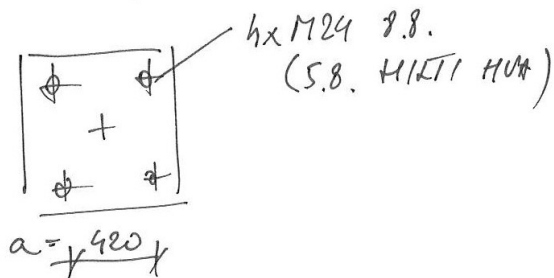 4x M24 8.8.
(5.8. HILTI HVA)
a= 420